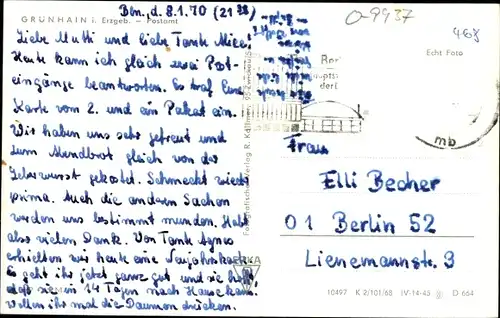 GRÜNHAIN i. Erzgeb. – Postamt
Bln., d. 8.1.70 (21 38)
Liebe Mutti und liebe Tante Mice,
Heute kann ich gleich zwei Post-
eingänge beantworten. Es traf Eure
Karte vom 2. und ein Paket ein.
Wir haben uns sehr gefreut und
zum Abendbrot gleich von der
Leberwurst gekostet. Schmeckt wieder
prima. Auch die anderen Sachen
werden uns bestimmt munden. Habt
also vielen Dank. Von Tante Agnes
erhielten wir heute eine Neujahrskarte.
Es geht ihr jetzt ganz gut und sie hofft,
daß sie in 14 Tagen nach Hause kann.
Wollen ihr mal die Daumen drücken.
Fotografischer Verlag R. Kallmer, 95 Zwickau
O-9937
468
Echt Foto
mb
Frau
Elli Becher
01 Berlin 52
Lienemannstr. 9
10497 K 2/101/68 IV-14-45 D 664